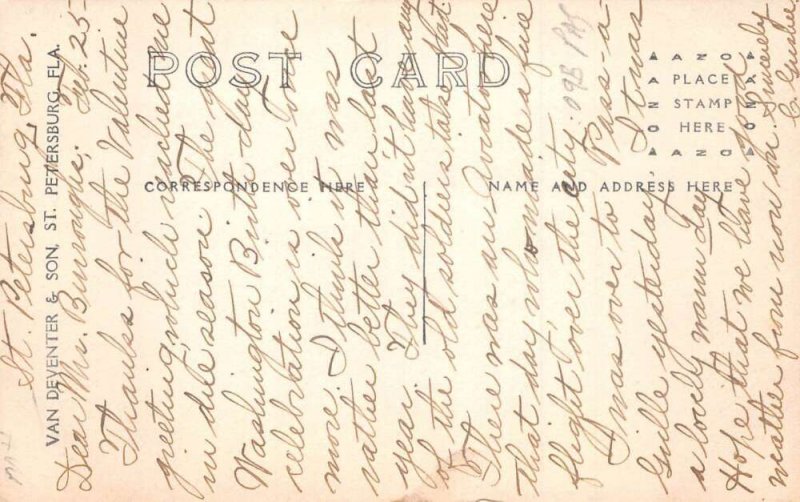 St. Petersburg, Fla.
Feb. 25-
Dear Mr. Burroughs;
Thanks for the Valentine
greeting, which reached me
in due season. The great
Washington Birth-day
celebration is over once
more. I think it was
rather better than last
year. They did n't have any
of the old soldiers take part.
There was an Aviator here
that day who made a fine
flight over the city.
I was over to Pass-a-
Grille yesterday, it was
a lovely warm day.
Hope that we have some
weather from now on. Sincerely
C.
POST CARD
CORRESPONDENCE HERE
NAME AND ADDRESS HERE
AZO
PLACE
STAMP
HERE
AZO
VAN DEVENTER & SON, ST. PETERSBURG, FLA.